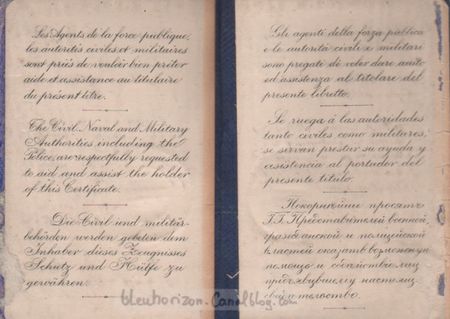 Les Agents de la force publique,
les autorités civiles et militaires
sont priés de vouloir bien prêter
aide et assistance au titulaire
du présent titre.
The Civil, Naval and Military
Authorities including the
Police, are respectfully requested
to aid and assist the holder
of this Certificate.
Die Civil und militär-
behörden werden gebeten dem
Inhaber dieses Zeugnisses
Schutz und Hülfe zu
gewähren.
Gli agenti della forza pubblica
e le autorità civili e militari
sono pregate di voler dare aiuto
ed assistenza al titolare del
presente libretto.
Se ruega á las autoridades
tanto civiles como militares,
se sirvan prestar su ayuda y
asistencia al portador del
presente titulo.
Покорнѣйше просятъ
Г.Г. Представителей военной,
гражданской и полицейской
властей оказать возможную
помощь и содѣйствіе лицу
bleuhorizon.Canalblog.com